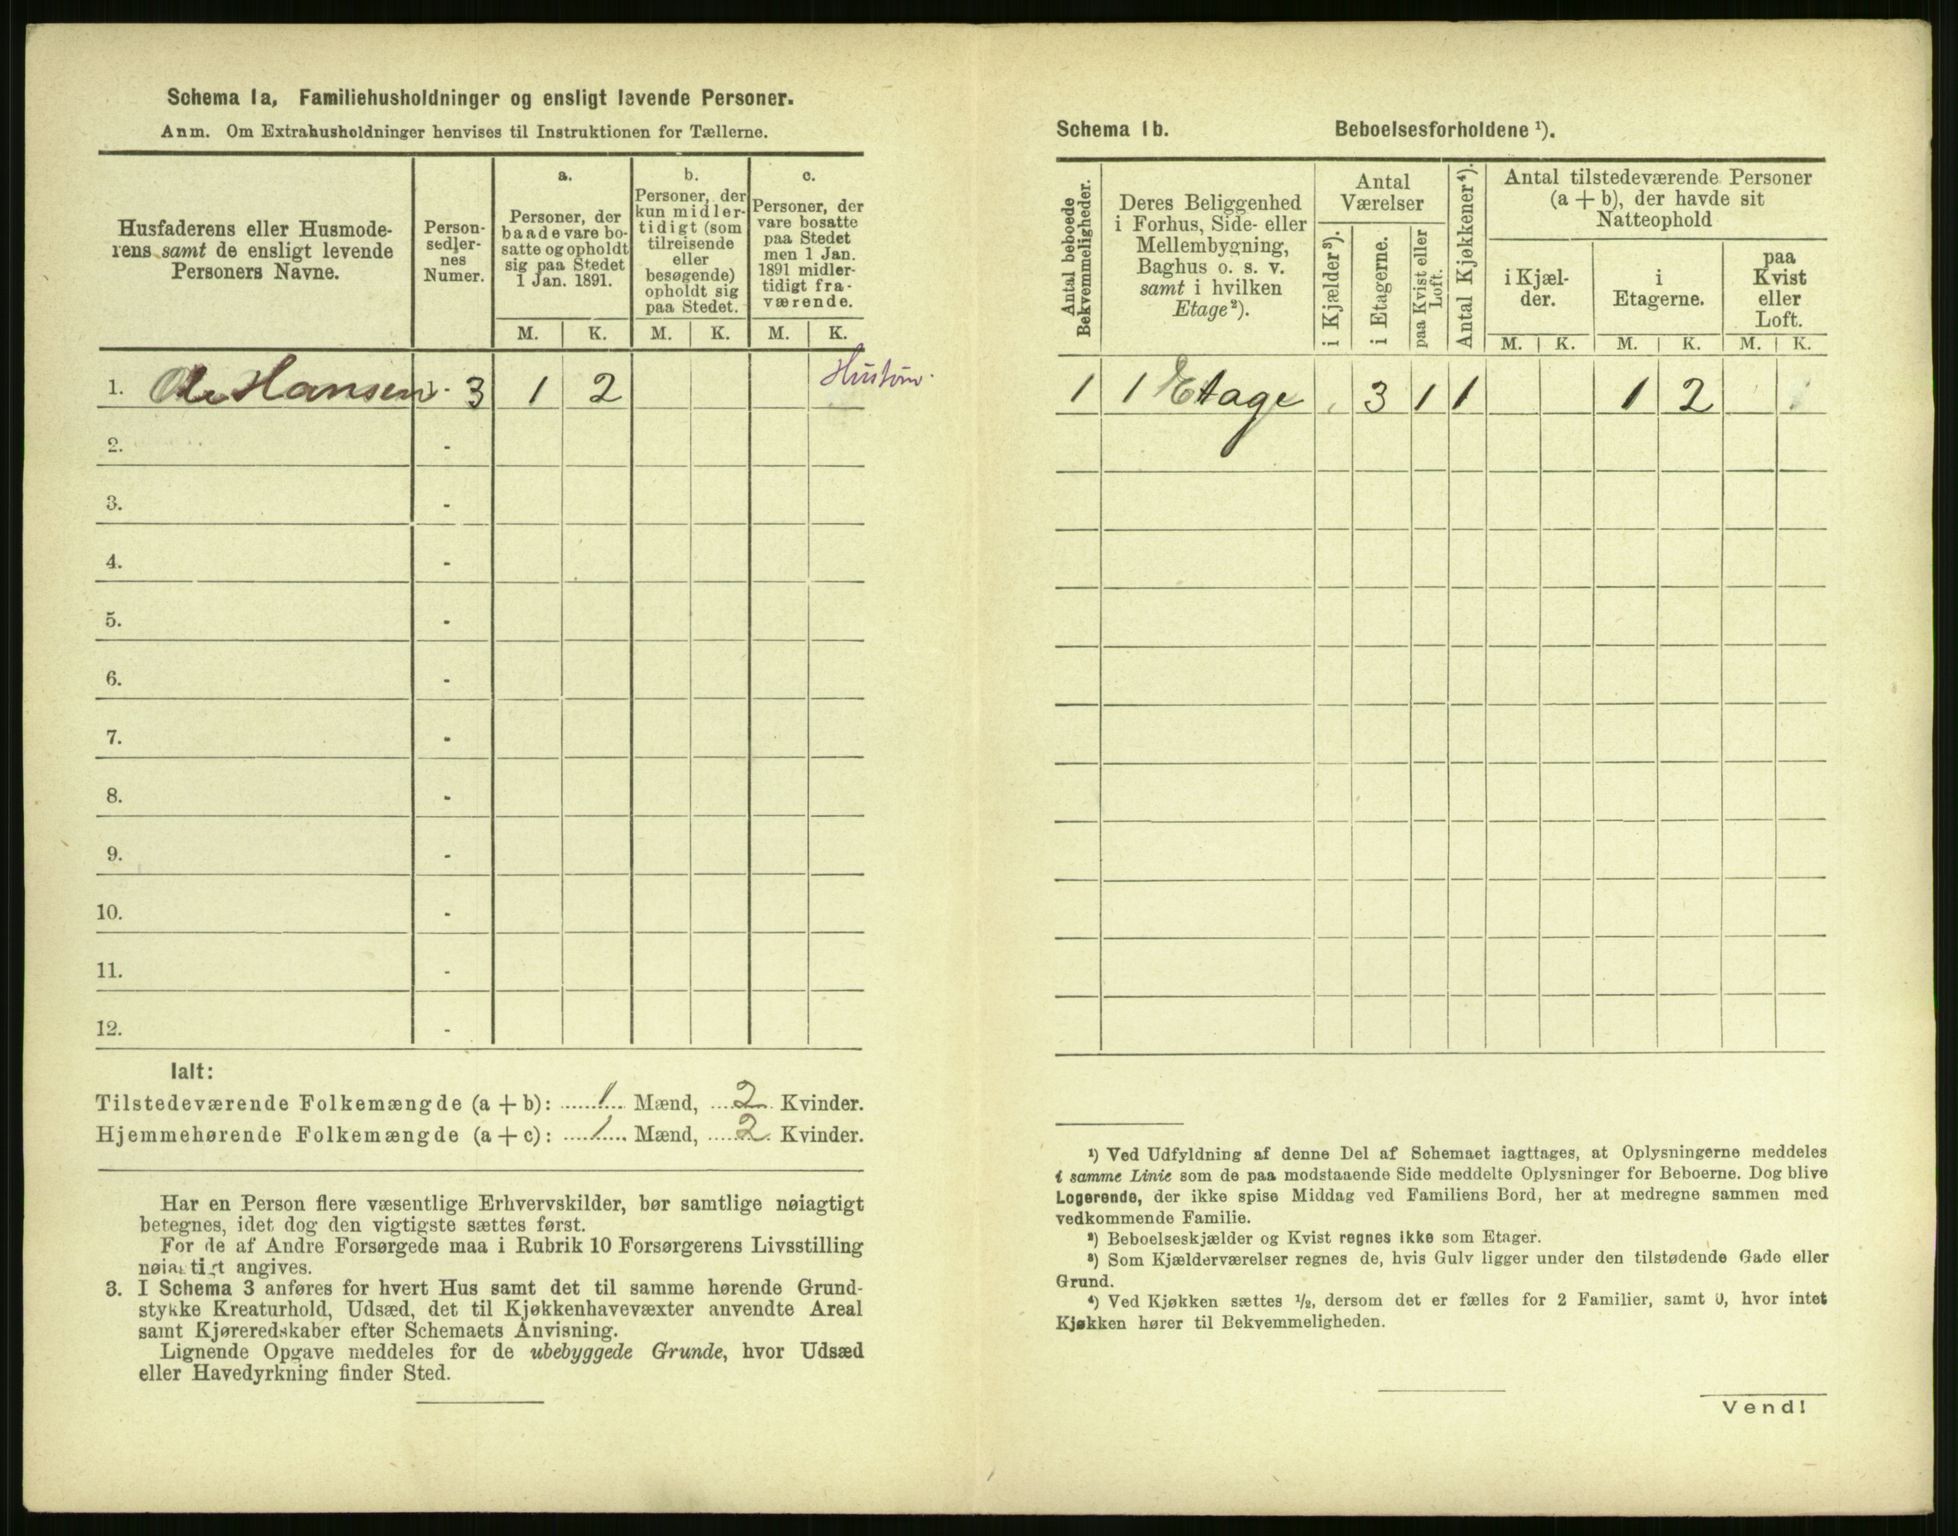 Schema 1a, Familiehusholdninger og ensligt levende Personer.
Anm. Om Extrahusholdninger henvises til Instruktionen for Tællerne.
Husfaderens eller Husmode-
rens samt de ensligt levende
Personers Navne.
Person-
sedler-
nes
Numer.
a.
Personer, der
baade vare bo-
satte og opholdt
sig paa Stedet
1 Jan. 1891.
b.
Personer, der
kun midler-
tidigt (som
tilreisende
eller
besøgende)
opholdt sig
paa Stedet.
c.
Personer, der
vare bosatte
paa Stedet
men 1 Jan.
1891 midler-
tidigt fra-
værende.
M. K. M. K. M. K.
1. Ole Hansen 1 - 3 1 2
2. -
3. -
4. -
5. -
6. -
7. -
8. -
9. -
10. -
11. -
12. -
Ialt:
Tilstedeværende Folkemængde (a + b): 1 Mænd, 2 Kvinder.
Hjemmehørende Folkemængde (a + c): 1 Mænd, 2 Kvinder.
Har en Person flere væsentlige Erhvervskilder, bør samtlige nøiagtigt
betegnes, idet dog den vigtigste sættes først.
For de af Andre Forsørgede maa i Rubrik 10 Forsørgerens Livsstilling
nøiagtigt angives.
3. I Schema 3 anføres for hvert Hus samt det til samme hørende Grund-
stykke Kreaturhold, Udsæd, det til Kjøkkenhavevæxter anvendte Areal
samt Kjøreredskaber efter Schemaets Anvisning.
Lignende Opgave meddeles for de ubebyggede Grunde, hvor Udsæd
eller Havedyrkning finder Sted.
Schema 1b. Beboelsesforholdene ¹).
Antal beboede
Bekvemmeligheder.
Deres Beliggenhed
i Forhus, Side- eller
Mellembygning,
Baghus o. s. v.
samt i hvilken
Etage²).
Antal
Værelser
i Kjælder³).
i Etagerne.
paa Kvist eller
Loft.
Antal Kjøkkener⁴).
Antal tilstedeværende Personer
(a + b), der havde sit
Natteophold
i Kjæl-
der.
i
Etagerne.
paa
Kvist
eller
Loft.
M. K. M. K. M. K.
1 1 Etage 3 1 1 1 2
¹) Ved Udfyldning af denne Del af Schemaet iagttages, at Oplysningerne meddeles
i samme Linie som de paa modstaaende Side meddelte Oplysninger for Beboerne. Dog blive
Logerende, der ikke spise Middag ved Familiens Bord, her at medregne sammen med
vedkommende Familie.
²) Beboelseskjælder og Kvist regnes ikke som Etager.
³) Som Kjælderværelser regnes de, hvis Gulv ligger under den tilstødende Gade eller
Grund.
⁴) Ved Kjøkken sættes ½, dersom det er fælles for 2 Familier, samt 0, hvor intet
Kjøkken hører til Bekvemmeligheden.
Vend!